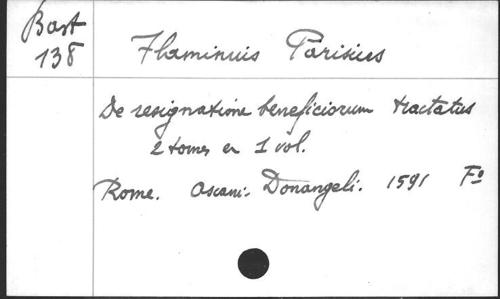 Bast
138
Flaminuis Parisius
De resignatione beneficiorum tractatus
2 tomes en 1 vol.
Rome. Ascani. Donangeli. 1591 Fº